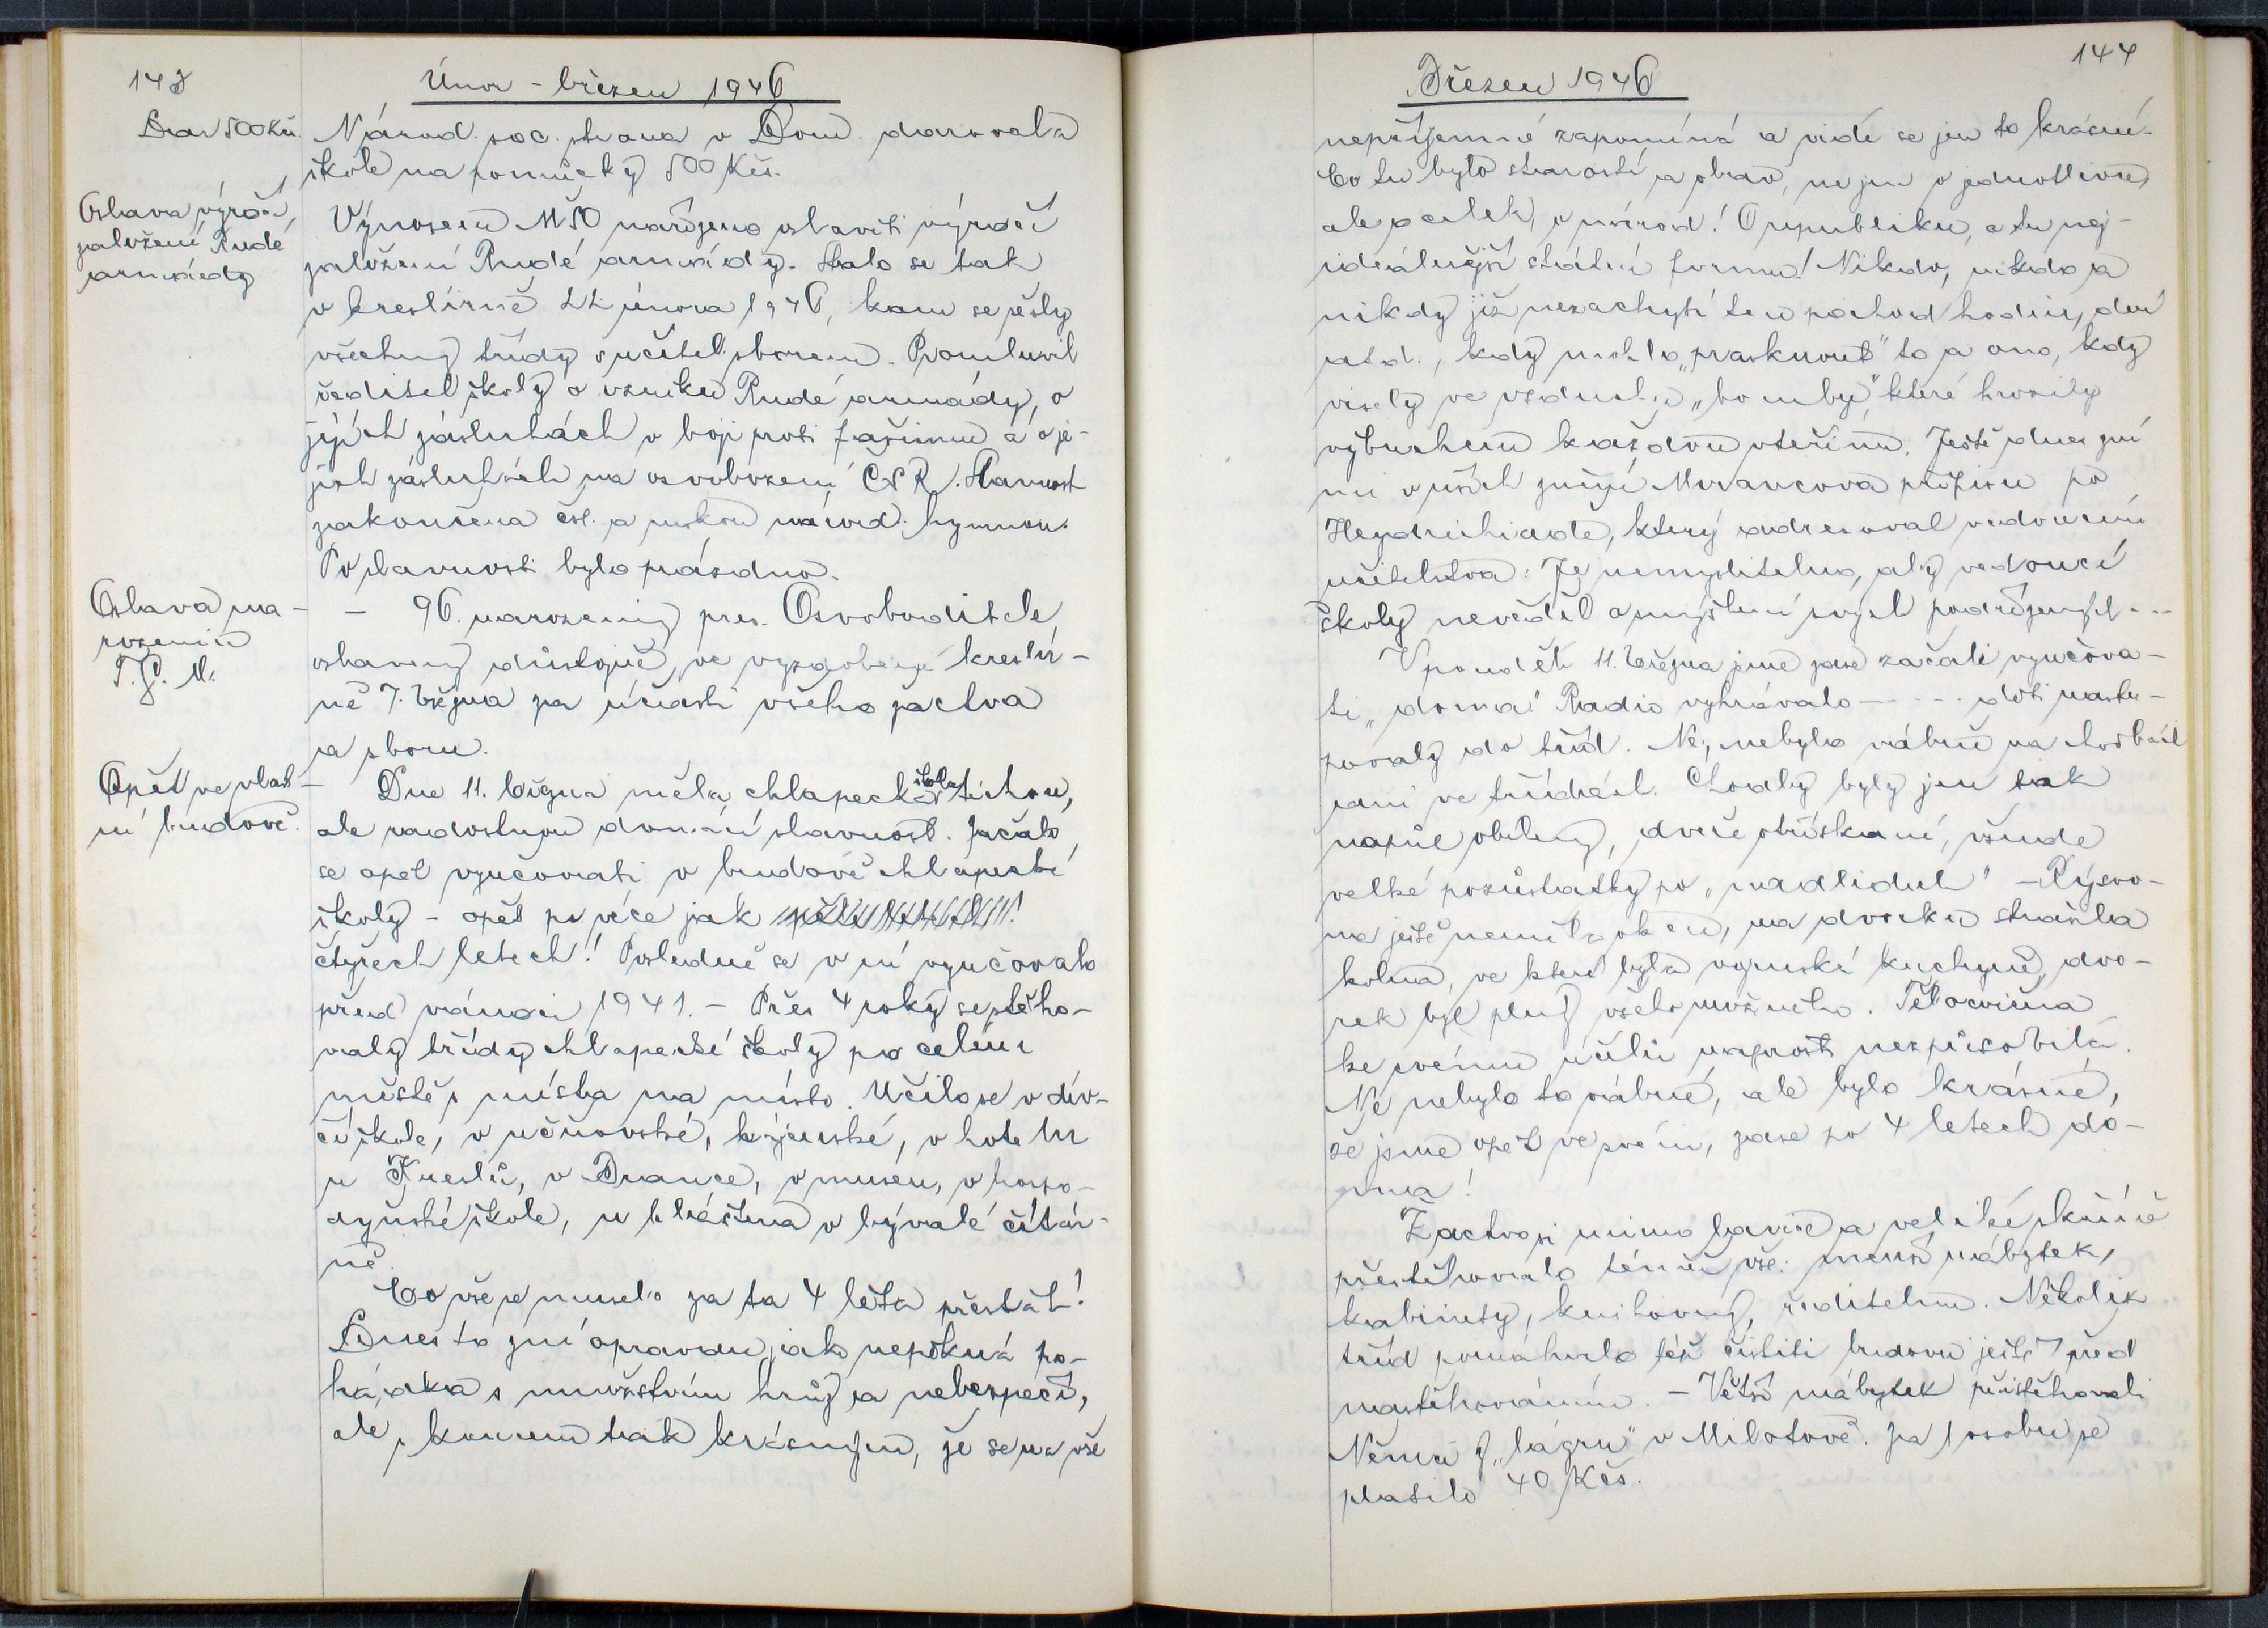 143
Únor - březen 1946
Dar 500 Kčs.
Národ. soc. strana v Dom. darovala
škole na pomůcky 500 Kčs.
Oslava výročí
založení Rudé
armády
Výnosem MŠO nařízeno oslaviti výročí
založení Rudé armády. Stalo se tak
v kreslírně 22. února 1946, kam se sešly
všechny třídy s učitel. sborem. Promluvil
ředitel školy o vzniku Rudé armády, o
jejích zásluhách v boji proti fašismu a o je-
jích zásluhách na osvobození ČSR. Slavnost
zakončena čsl. a ruskou národ. hymnou.
Po slavnosti bylo prázdno.
Oslava na-
rozenin
T. G. M.
- 96. narozeniny pres. Osvoboditele
oslaveny důstojně, ve vyzdobené kreslír-
ně 7. března za účasti všeho žactva
a sboru.
Opět ve vlast-
ní budově.
- Dne 11. března měla chlapecká škola tichou,
ale radostnou domácí slavnost. Začalo
se opět vyučovati v budově chlapecké
školy - opět po více jak
čtyřech letech! Posledně se v ní vyučovalo
před vánoci 1941. - Přes 4 roky se stěho-
valy třídy chlapecké školy po celém
městě s místa na místo. Učilo se v dív-
čí škole, v učňovské, kojenské, v hotelu
u Kreslů, v Brance, v museu, v hospo-
dyňské škole, u kláštera v bývalé čítár-
ně.
Co vše se muselo za ta 4 léta přestát!
Dnes to zní opravdu jako nepěkná po-
hádka s množstvím hrůz a nebezpečí,
ale s koncem tak krásným, že se na vše
144
Březen 1946
nepříjemné zapomíná a vidí se jen to krásné.
Co tu bylo starostí a obav, ne jen o jednotlivce,
ale o celek, o národ! O republiku, o tu nej-
ideálnější státní formu! Nikdo, nikdo a
nikdy již nezachytí ten pochod hodin, dní
atd., kdy mohlo „prasknout" to a ono, kdy
visely ve vzduchu „bomby", které hrozily
výbuchem každou vteřinu. Ještě dnes zní
mi v uších znění Moravcova přípisu po
Heydrichiadě, který adresoval vedoucím
učitelstva: Je nemyslitelno, aby vedoucí
školy nevěděl o smýšlení svých podřízených...
V pondělí 11. března jsme zase začali vyučova-
ti „doma" Radio vyhrávalo - - - - děti nastu-
povaly do tříd. Ne, nebylo vábně na chodbách
ani ve třídách. Chodby byly jen tak
napůl obíleny, dveře otřískané, všude
velké pozůstatky po „nadlidech" - Rýsov-
na ještě neměla oken, na dvorku strašila
kolna, ve které byla vojenská kuchyně, dvo-
rek byl plný všeho možného. Tělocvična
ke svému účelu naprosto nezpůsobilá.
Ne nebylo to vábné, ale bylo krásné,
že jsme opět ve svém, zase po 4 letech do-
ma!
Žactvo si mimo lavice a veliké skříně
přestěhovalo téměř vše: menší nábytek,
kabinety, knihovny, ředitelnu. Několik
tříd pomáhalo též čistiti budovu ještě před
nastěhováním. - Větší nábytek přistěhovali
Němci z „lágru" v Milotově. Za 1 osobu se
platilo 40 Kčs.